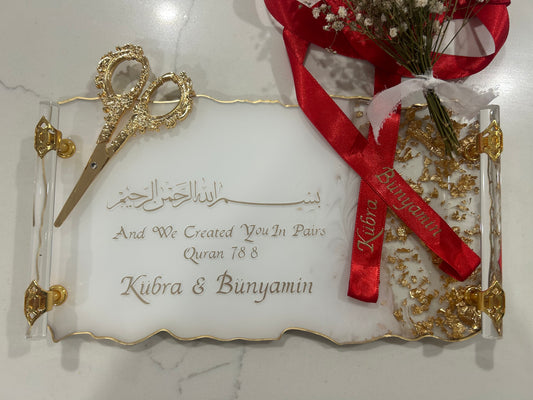 بسم الله الرحمن الرحيم
And We Created You In Pairs
Quran 78 8
Kübra & Bünyamin
Kübra
Bünyamin